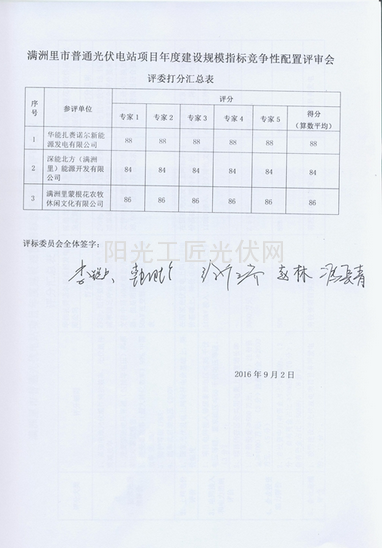 满洲里市普通光伏电站项目年度建设规模指标竞争性配置评审会
评委打分汇总表
序号 参评单位 评分
专家 1 专家 2 专家 3 专家 4 专家 5 得分（算数平均）
1 华能扎赉诺尔新能源发电有限公司 88 88 88 88 88 88
2 深能北方（满洲里）能源开发有限公司 84 84 84 84 84 84
3 满洲里蒙根花农牧休闲文化有限公司 86 86 86 86 86 86
评标委员会全体签字：
阳光工匠光伏网
赵林
2016 年 9 月 2 日